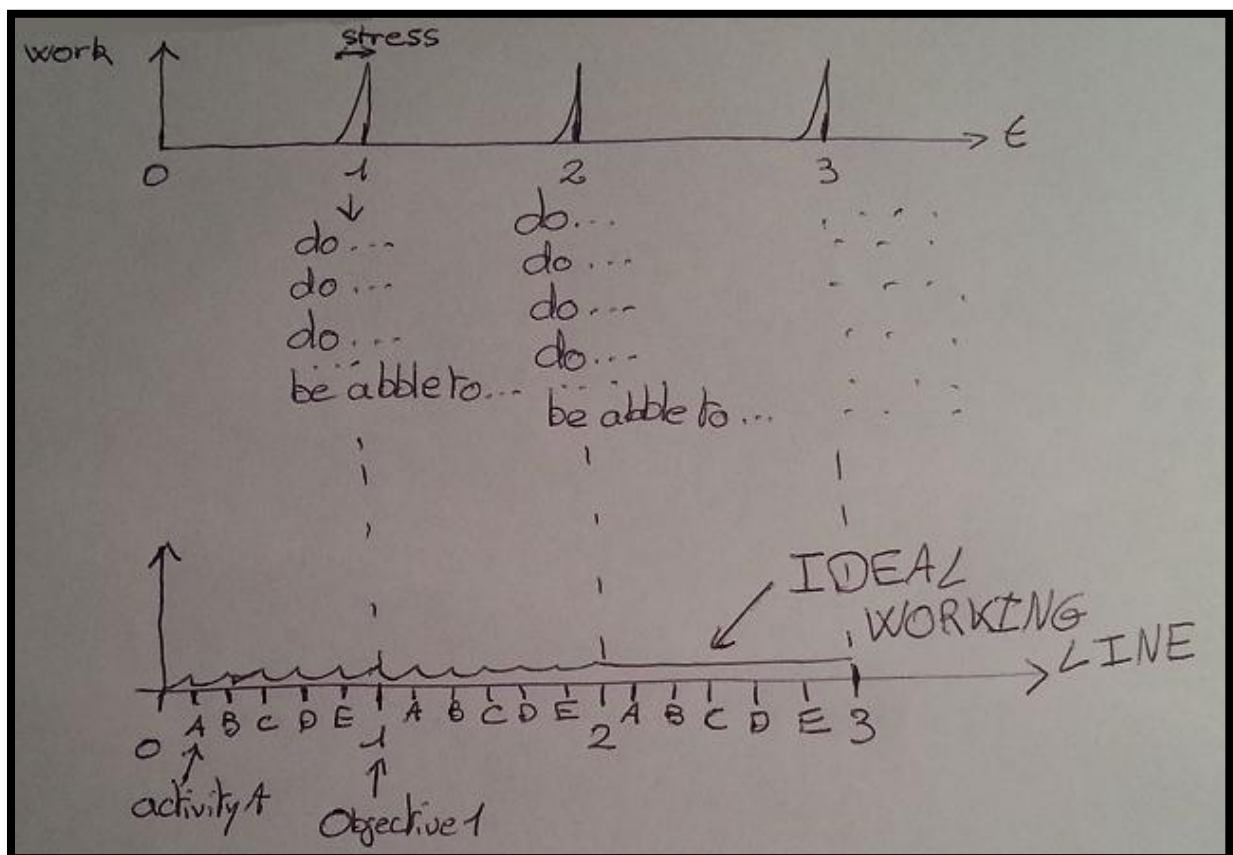 work
stress
t
0 1 2 3
do... do...
do... do...
do... do...
be abble to... do...
be abble to...
IDEAL
WORKING
LINE
A B C D E A B C D E A B C D E
0 1 2 3
activity A
Objective 1